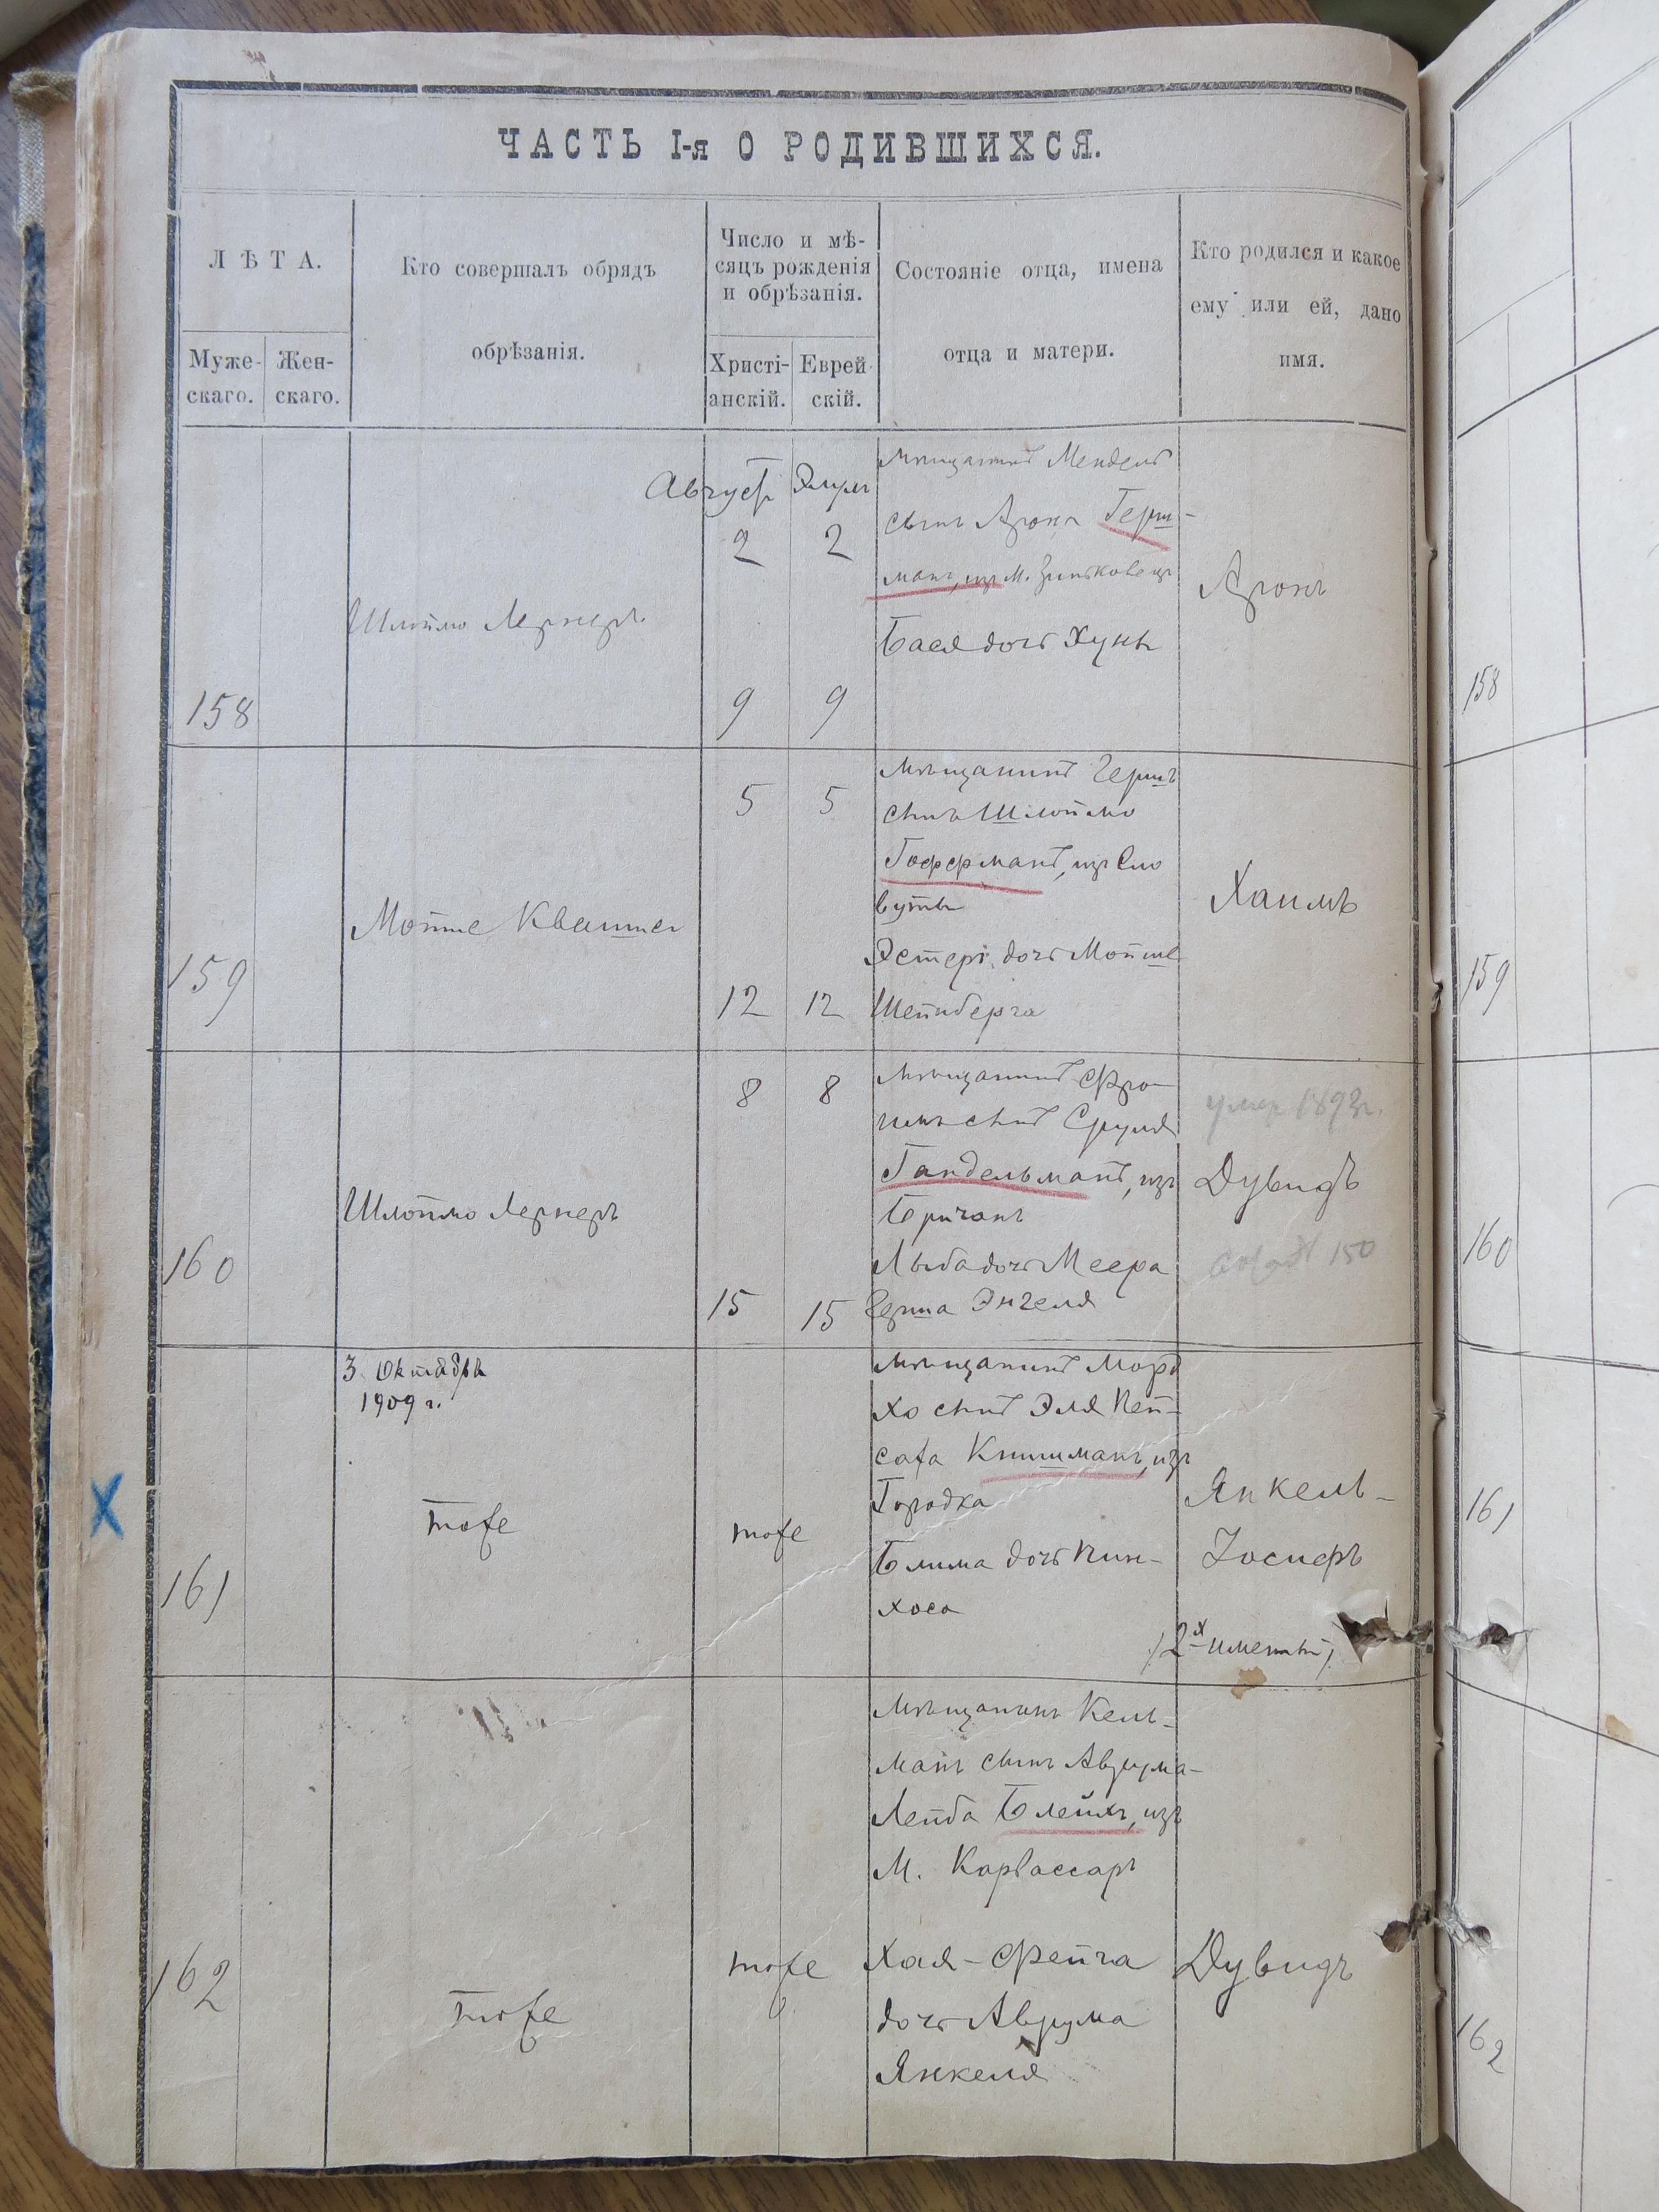 ЧАСТЬ I-я О РОДИВШИХСЯ.
ЛѢТА.
Муже-
скаго.
Жен-
скаго.
Кто совершалъ обрядъ
обрѣзанія.
Число и мѣ-
сяцъ рожденія
и обрѣзанія.
Христі-
анскій.
Еврей-
скій.
Состояніе отца, имена
отца и матери.
Кто родился и какое
ему или ей, дано
имя.
158
Шлоймо Лернеръ
Август Элулъ
2 2
9 9
мѣщанинъ Мендель
сынъ Арона Герш-
манъ, изъ м. Зиньковецъ
Бася дочь Хуны
Аронъ
158
159
Мойше Квашнеъ
5 5
12 12
мѣщанинъ Гершъ
сынъ Шлоймо
Гоффманъ, изъ Сло
вуты
Эстеръ дочь Мойше
Шейнберга
Хаимъ
159
160
Шлоймо Лернеръ
8 8
15 15
мѣщанинъ Фро-
имъ сынъ Сруля
Гандельманъ, изъ
Бричанъ
Лыба дочь Меера
Герша Энгеля
умер 1893г.
Дувидъ
150
160
161
3 Октября
1909 г.
тоже
тоже
мѣщанинъ Морд
хо сынъ Эля Пей-
саха Книшманъ, изъ
Городка
Блима дочь Пин-
хоса
Янкель-
Іосифъ
(2-х именный)
161
162
тоже
тоже
мѣщанинъ Кель-
манъ сынъ Аврума-
Лейба Блейхъ, изъ
М. Карвассаръ
Хая-Фейга
дочь Аврума
Янкеля
Дувидъ
162